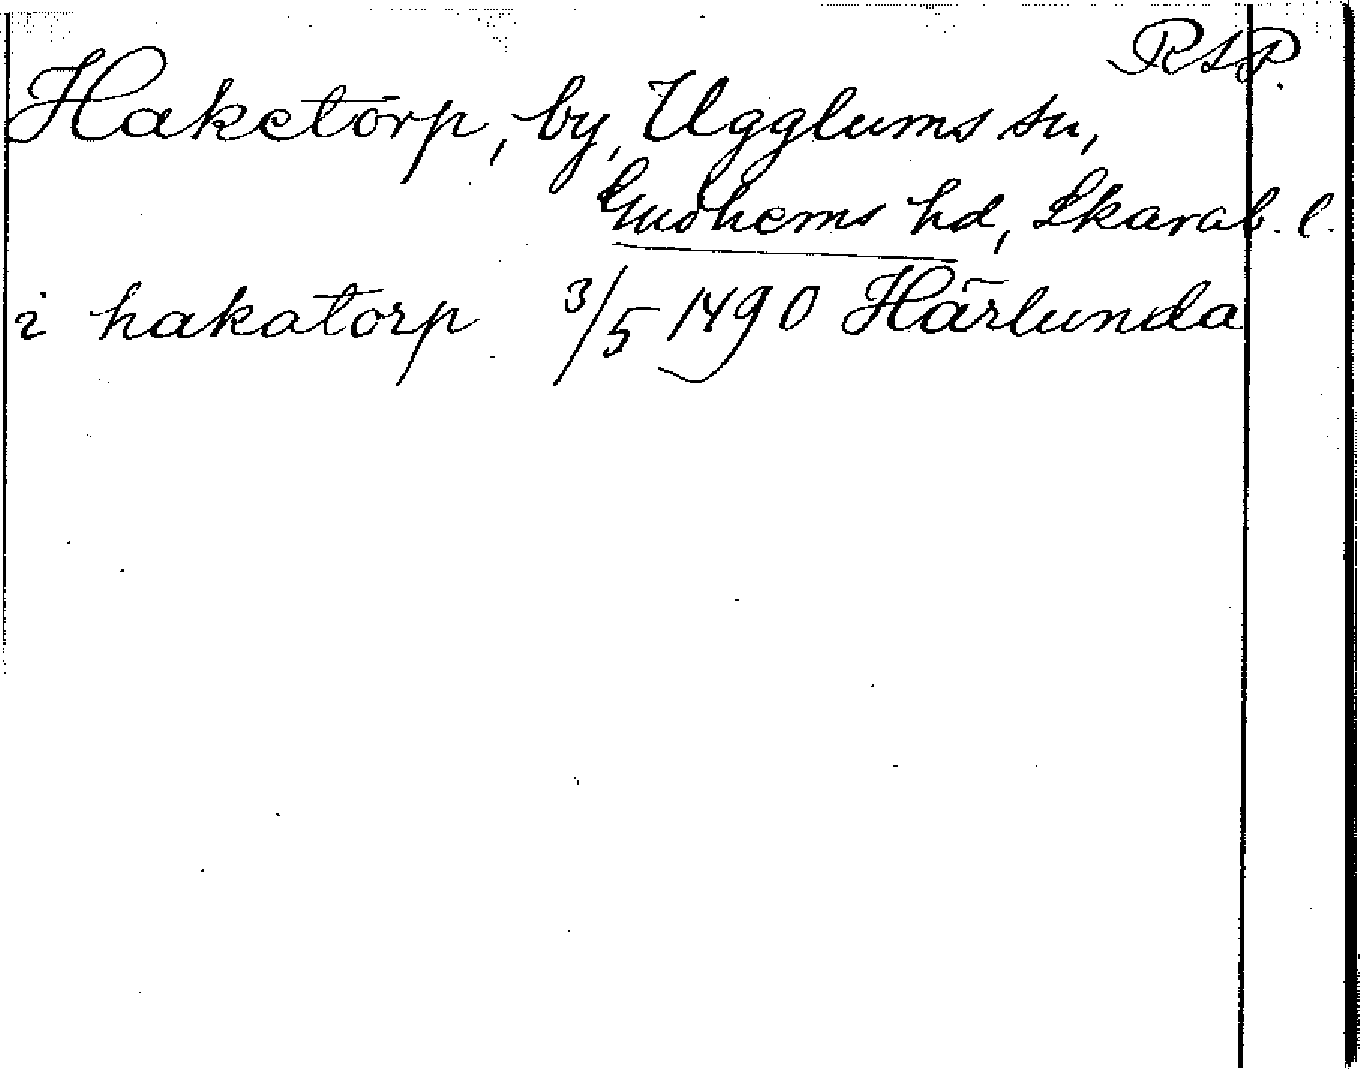 RAP.
Haketorp, by, Ugglums sn,
Gudhems hd, Skarab. l.
i hakatorp 3/5 1490 Härlunda